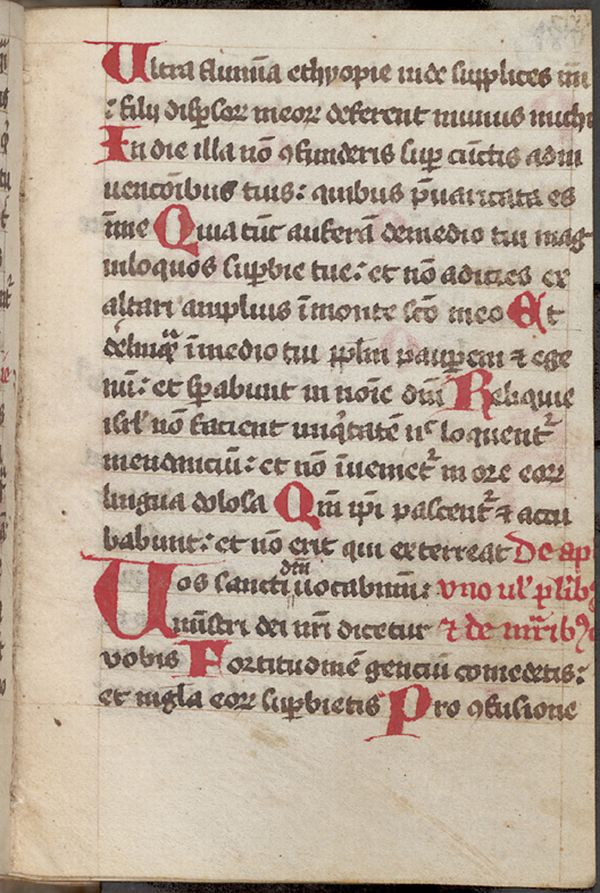 Ultra flumĩa ethyopie inde supplices mi
: filij disꝑsoꝝ meoꝝ deferent munus michi
In die illa nõ ꝯfunderis suꝑ cũctis adin
uencõibus tuis: quibus p̃uaricata es
ĩ me Quia tũc auferã de medio tui mag
niloquos suꝑbie tue: et nõ adicies ex
altari amplius ĩ monte scõ meo Et
ĩ medio tui pplm pauꝑem ⁊ ege
nũ: et sꝑabunt in noĩe dñi Reliquie
isrl' nõ facient iniqͥtatẽ nͨ loquentᷣ
mendaciũ: et nõ ĩuenietᷣ in ore eoꝝ
lingua dolosa Qm̃ ip̃i pascentᷣ ⁊ accu
babunt: et nõ erit qui exterreat De ap
Uos sancti dñi uocabimi: vno ul' pl'ibꝫ
ministri dei nr̃i dicetur ⁊ de mr̃ibꝫ
vobis Fortitudinẽ genciũ comedetis:
et in gl'a eoꝝ suꝑbietis Pro ꝯfusione